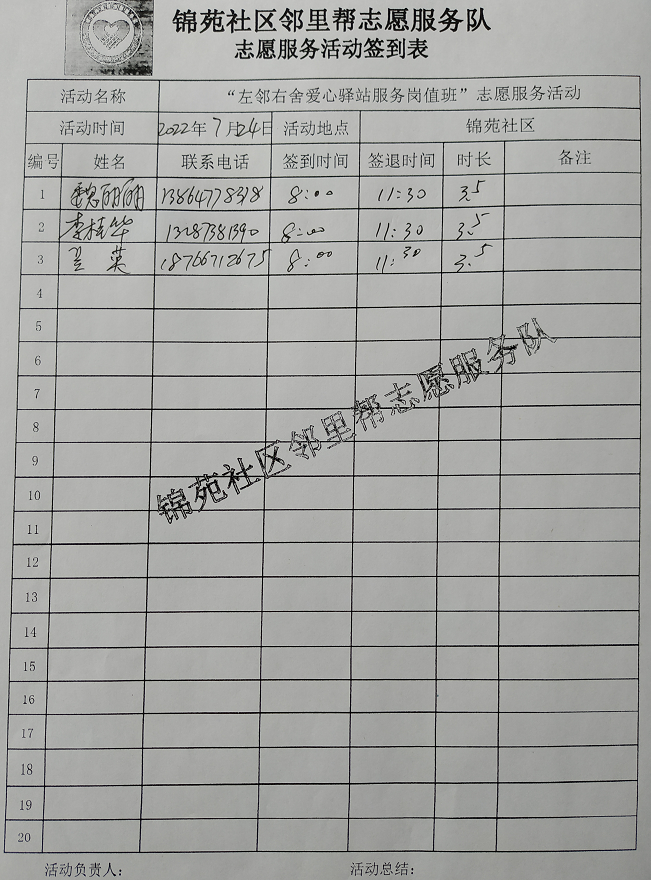 锦苑社区邻里帮志愿服务队
志愿服务活动签到表
活动名称 “左邻右舍爱心驿站服务岗值班”志愿服务活动
活动时间 2022年7月24日 活动地点 锦苑社区
编号 姓名 联系电话 签到时间 签退时间 时长 备注
1 魏丽丽 13864778318 8:00 11:30 3.5
2 李桂华 13287381390 8:00 11:30 3.5
3 兰英 18766712675 8:00 11:30 3.5
4
5
6
7
8
9
10
11
12
13
14
15
16
17
18
19
20
锦苑社区邻里帮志愿服务队
活动负责人： 活动总结：